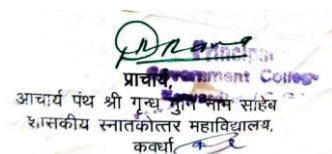 Principal
Government College
प्राचार्य,
आचार्य पंथ श्री गृन्ध मुनि नाम साहेब
शासकीय स्नातकोत्तर महाविद्यालय,
कवर्धा